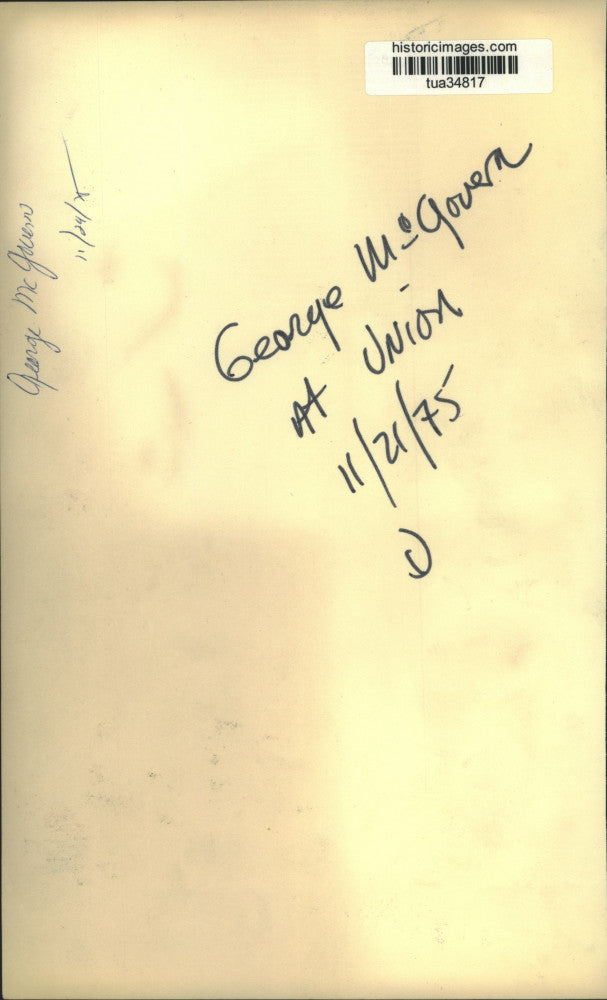 historicimages.com
tua34817
George McGovern
At Union
11/21/75
George McGovern